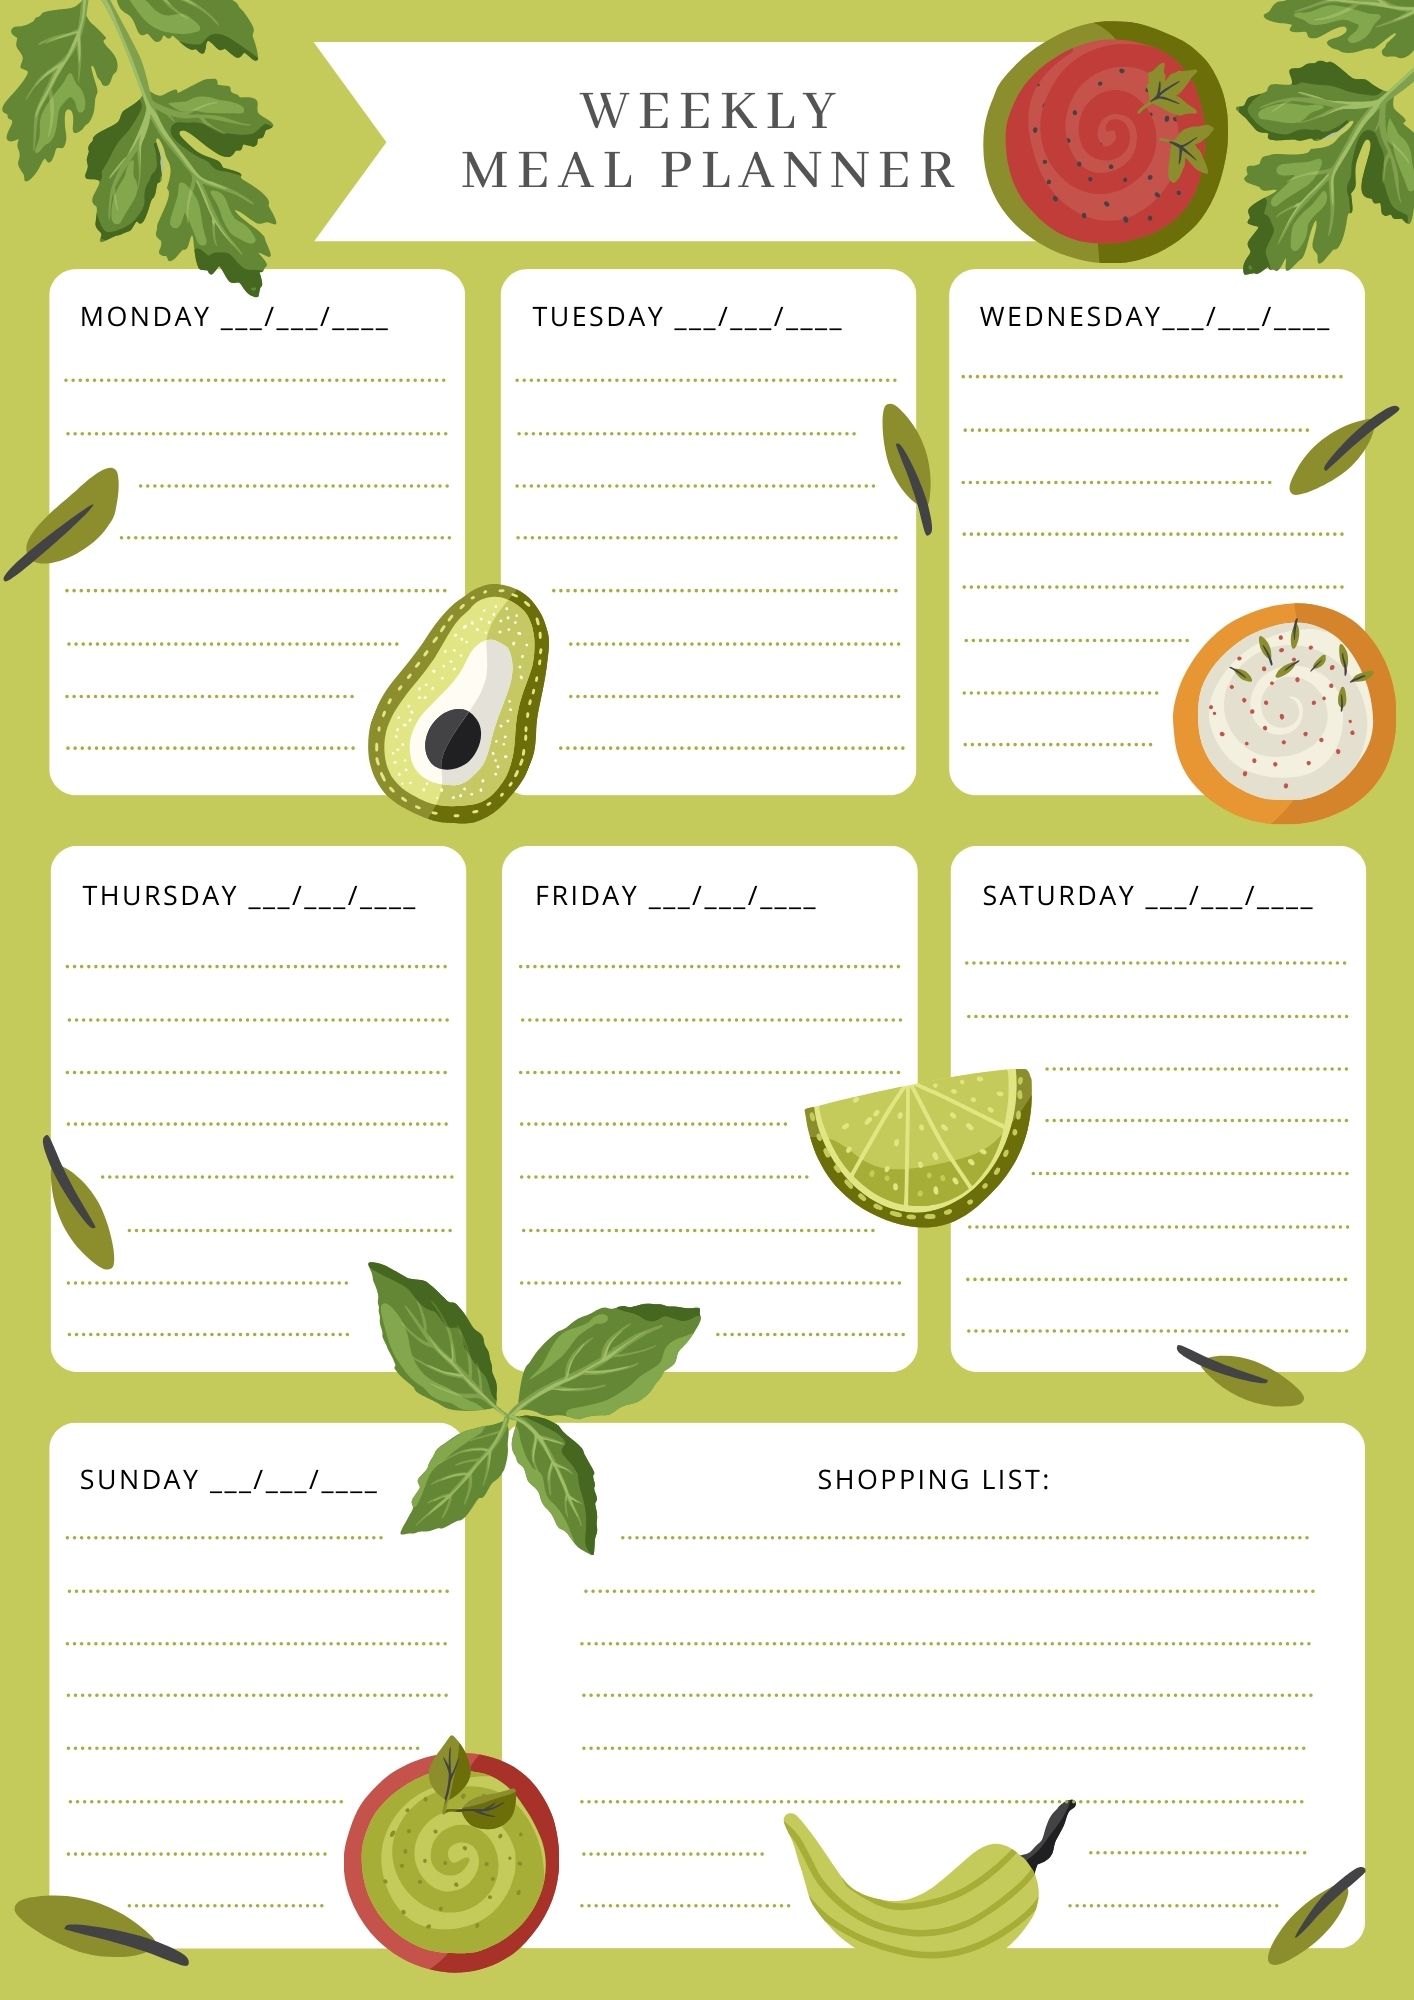 WEEKLY
MEAL PLANNER
MONDAY ___/___/____
TUESDAY ___/___/____
WEDNESDAY___/___/____
THURSDAY ___/___/____
FRIDAY ___/___/____
SATURDAY ___/___/____
SUNDAY ___/___/____
SHOPPING LIST: